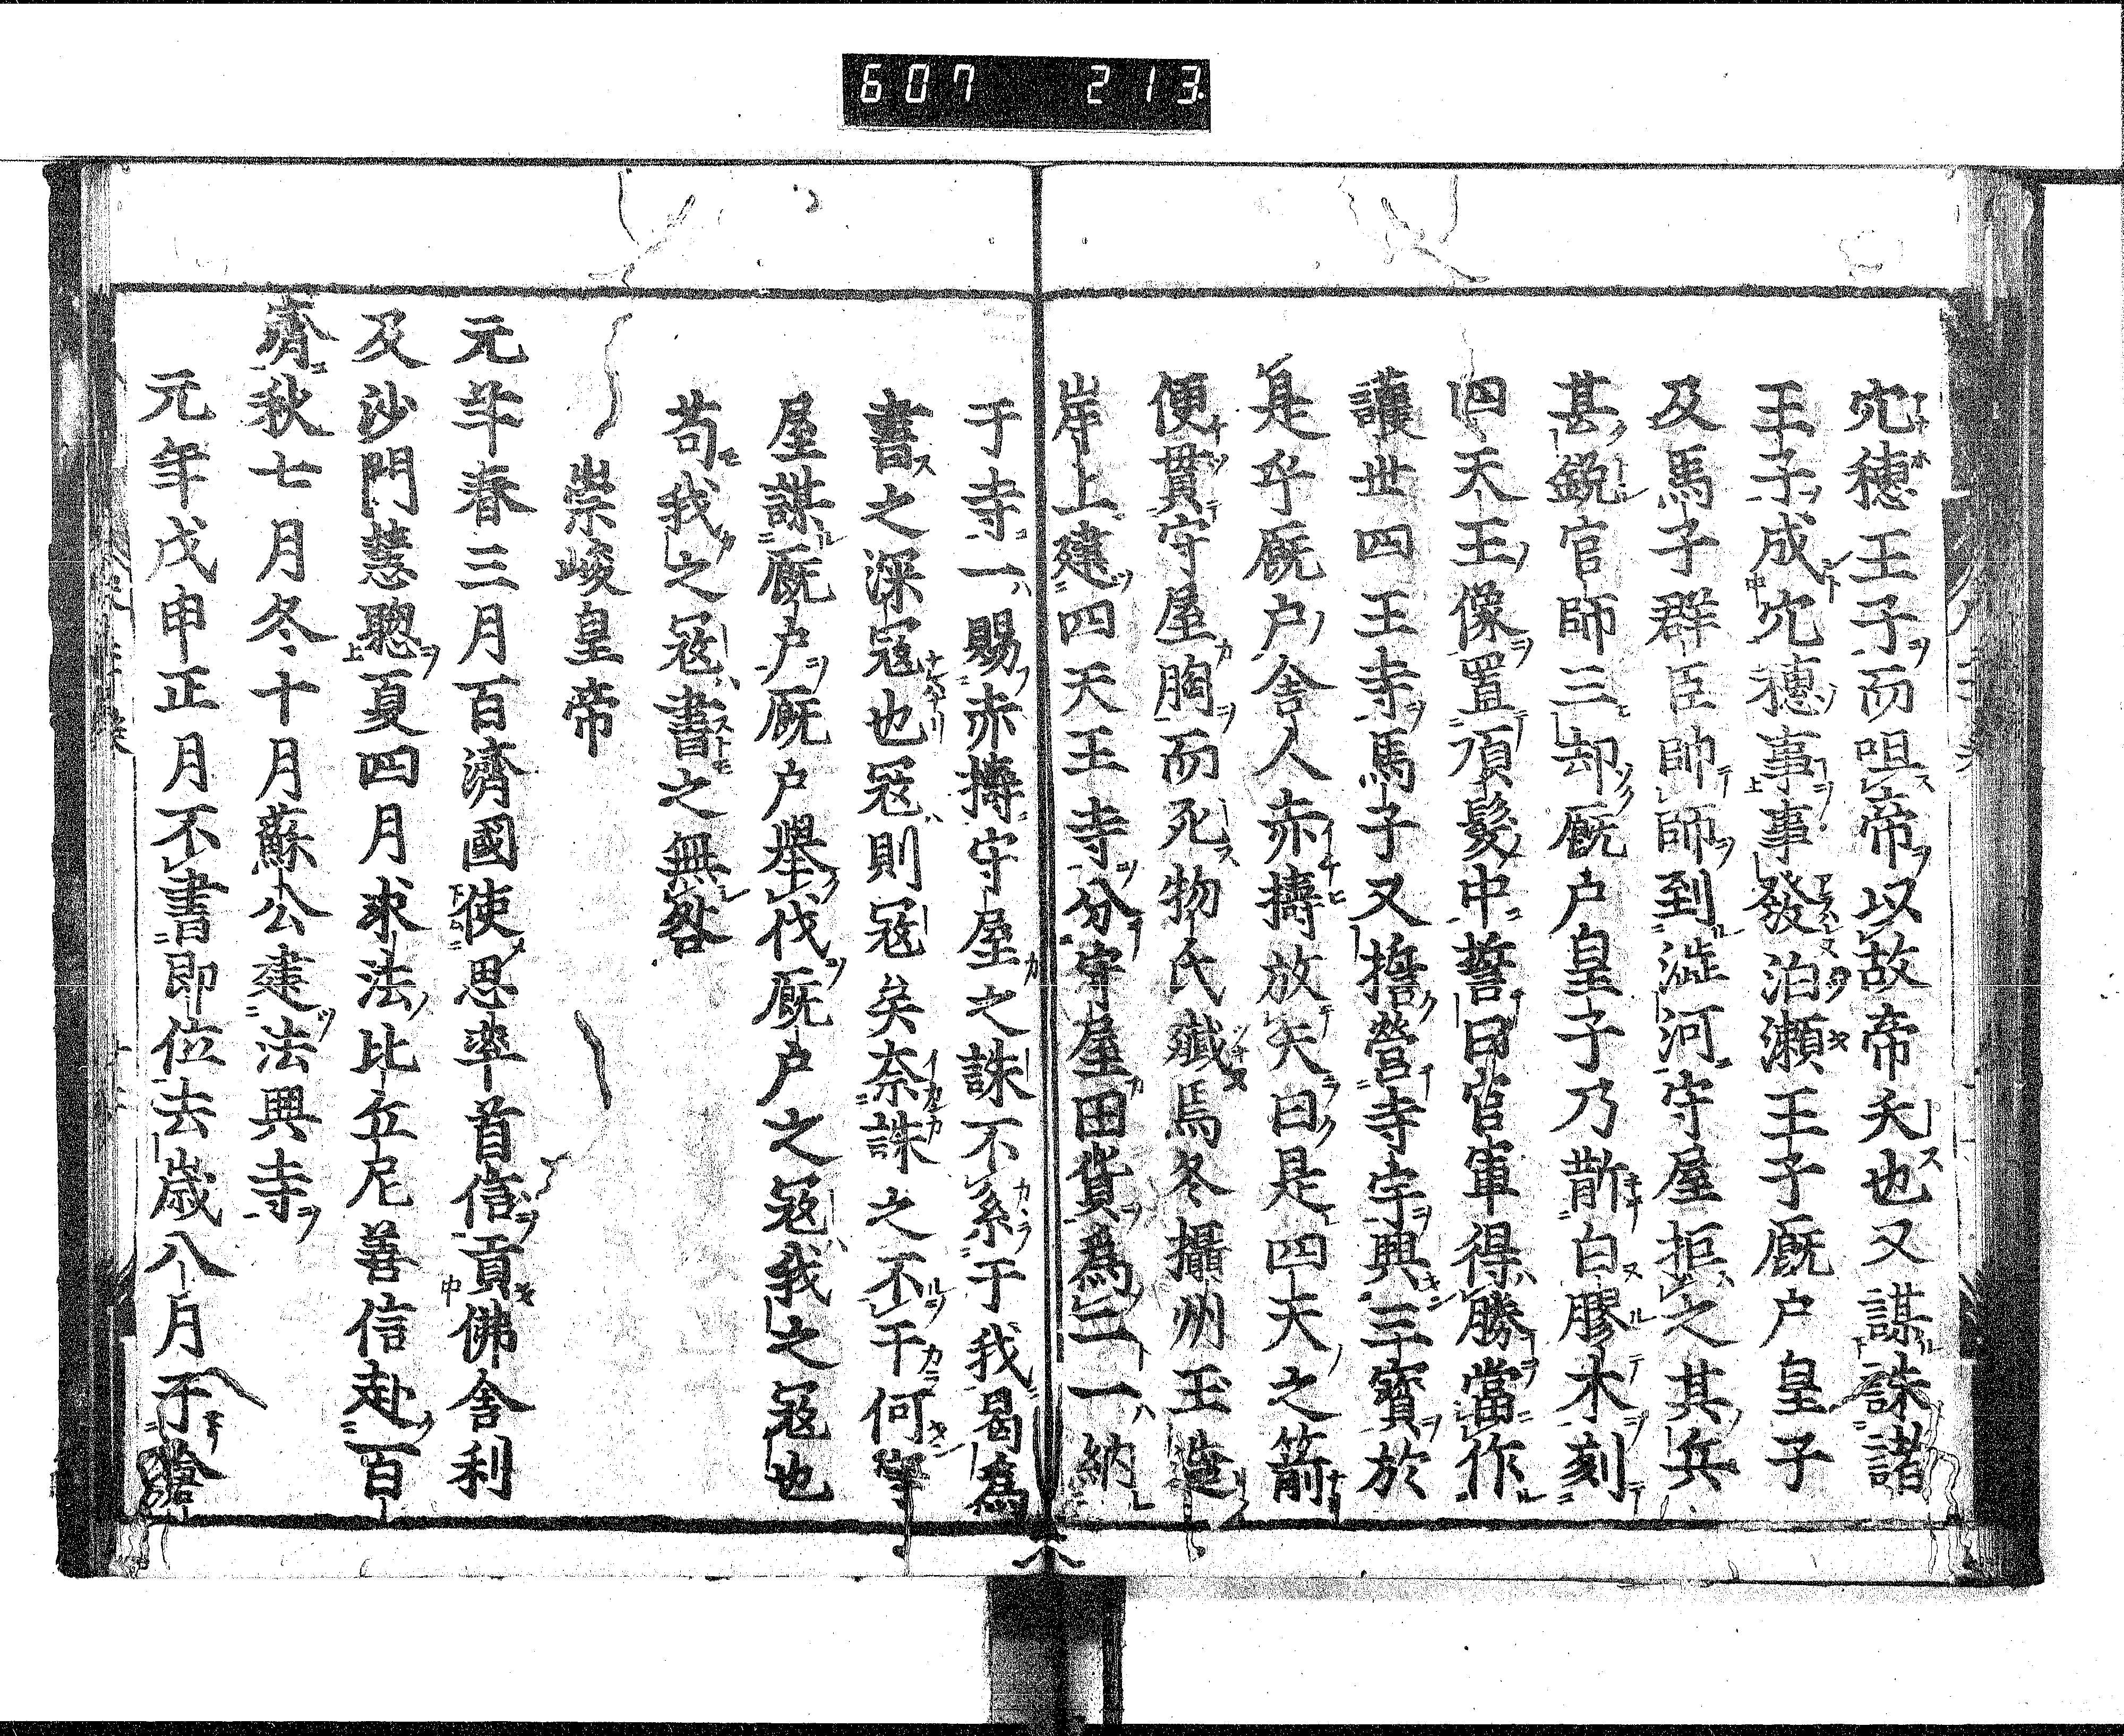 607 213
穴穂王子而咀帝以故帝夭也又謀誅諸
王子成穴穗事事發泊瀬王子厩户皇子
及馬子群臣帥師到澁河守屋拒之其兵
甚鋭官師三却厩户皇子乃斮白膠木刻
四天王像置頂髮中誓曰官軍得勝當作
護世四王寺馬子又擔營寺宇興三寶於
是乎厩户舍人赤擣放矢曰是四天之箭
便貫守屋胸而死物氏殲焉冬攝州玉造
岸上建四天王寺分守屋田貨為二一納
于寺一賜赤擣守屋之誅不系于我曷為
書之深冦也冦則冦矣奈誅之不干何寧
屋謀厩户厩户舉伐厩户之冦我之冦也
苟我之冦書之無咎
崇峻皇帝
元年春三月百濟國使思率首信貢佛舍利
及沙門慧聰夏四月求法比丘尼善信赴百
濟秋七月冬十月蘇公建法興寺
元年戊申正月不書即位去歳八月于